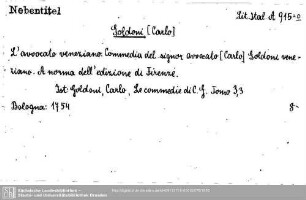 Nebentitel
Lit. Ital A 915-0
Goldoni [Carlo]
L'avvocato veneziano. Commedia del signor avvocato [Carlo] Goldoni vene-
ziano. A norma dell'edizione di Firenze.
Ist: Goldoni, Carlo, Le commedie di C. G. Tomo 3,3
Bologna: 1754
8-
Sächsische Landesbibliothek -
Staats- und Universitätsbibliothek Dresden